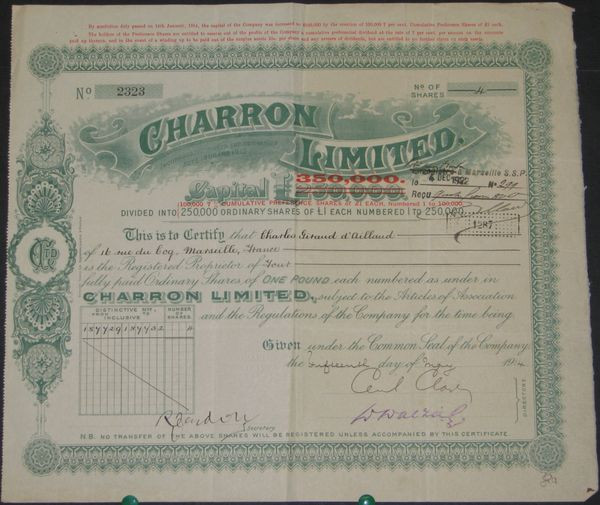 By resolution duly passed on 14th January, 1914, the capital of the Company was increased to £350,000 by the creation of 100,000 7 per cent. Cumulative Preference Shares of £1 each.
The holders of the Preference Shares are entitled to receive out of the profits of the Company a cumulative preferential dividend at the rate of 7 per cent. per annum on the amounts
paid up thereon, and in the event of a winding up to be paid out of the surplus assets and any arrears of dividends, but are entitled to no further share in such assets.
No 2323
No OF SHARES 4
CHARRON LIMITED.
Marseille S.S.P.
le 4 DEC
No 299
Reçu
1287
350,000.
Capital £250,000.
(100,000 7% CUMULATIVE PREFERENCE SHARES OF £1 EACH, Numbered 1 to 100,000.
DIVIDED INTO 250,000 ORDINARY SHARES OF £1 EACH NUMBERED 1 TO 250,000.
This is to Certify that Charles Giraud d'Aillaud
of 16 rue du Coq, Marseille, France
is the Registered Proprietor of Four
fully paid Ordinary Shares of ONE POUND each numbered as under in
CHARRON LIMITED, subject to the Articles of Association
and the Regulations of the Company for the time being
DISTINCTIVE Nos. INCLUSIVE
FROM TO
NUMBER OF SHARES.
4
Given under the Common Seal of the Company
the fifteenth day of May 1914
DIRECTORS
Secretary
N.B. NO TRANSFER OF THE ABOVE SHARES WILL BE REGISTERED UNLESS ACCOMPANIED BY THIS CERTIFICATE.